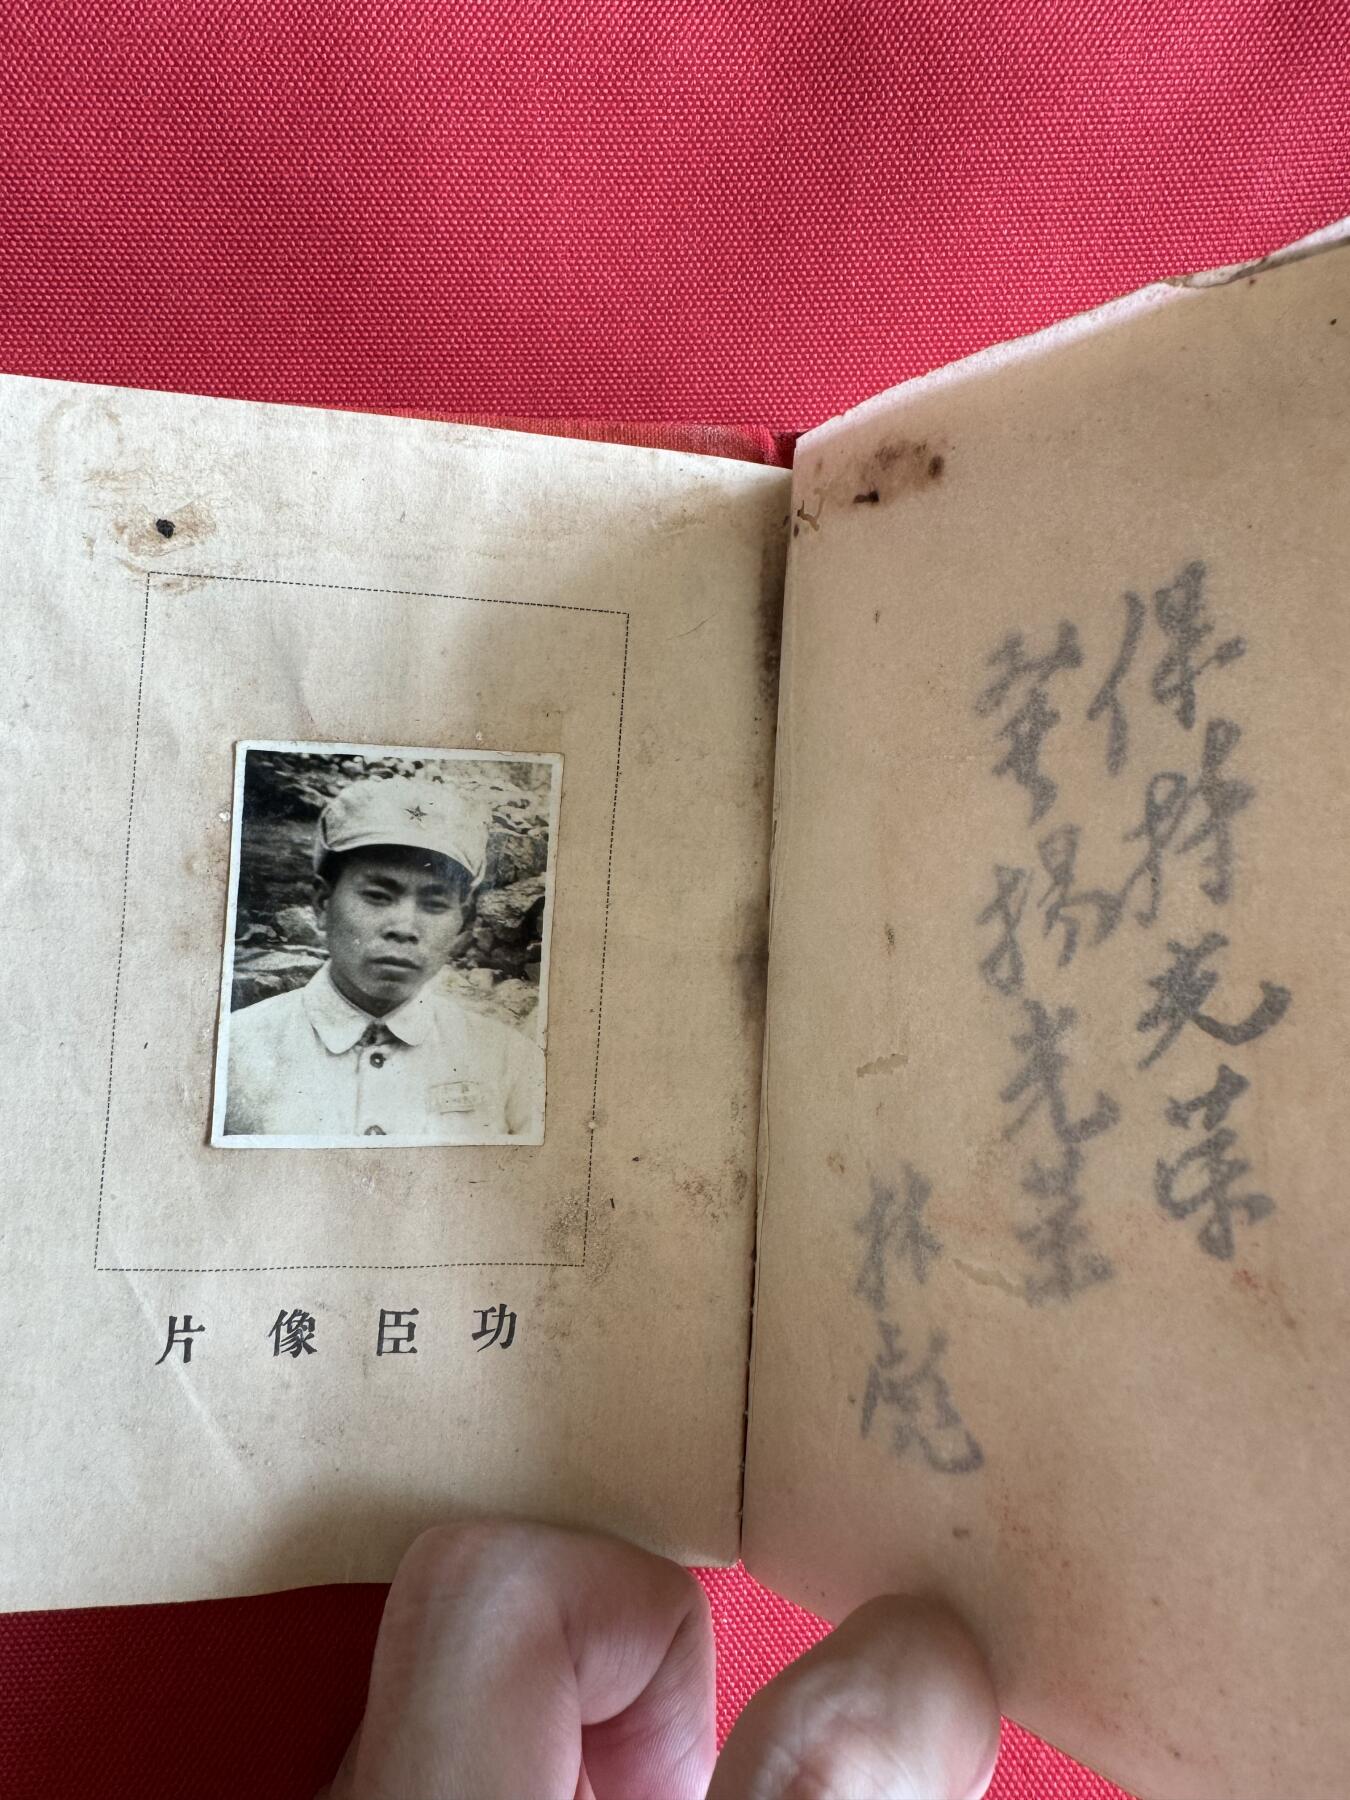 保持光荣
發揚光荣
林彪
功臣像片